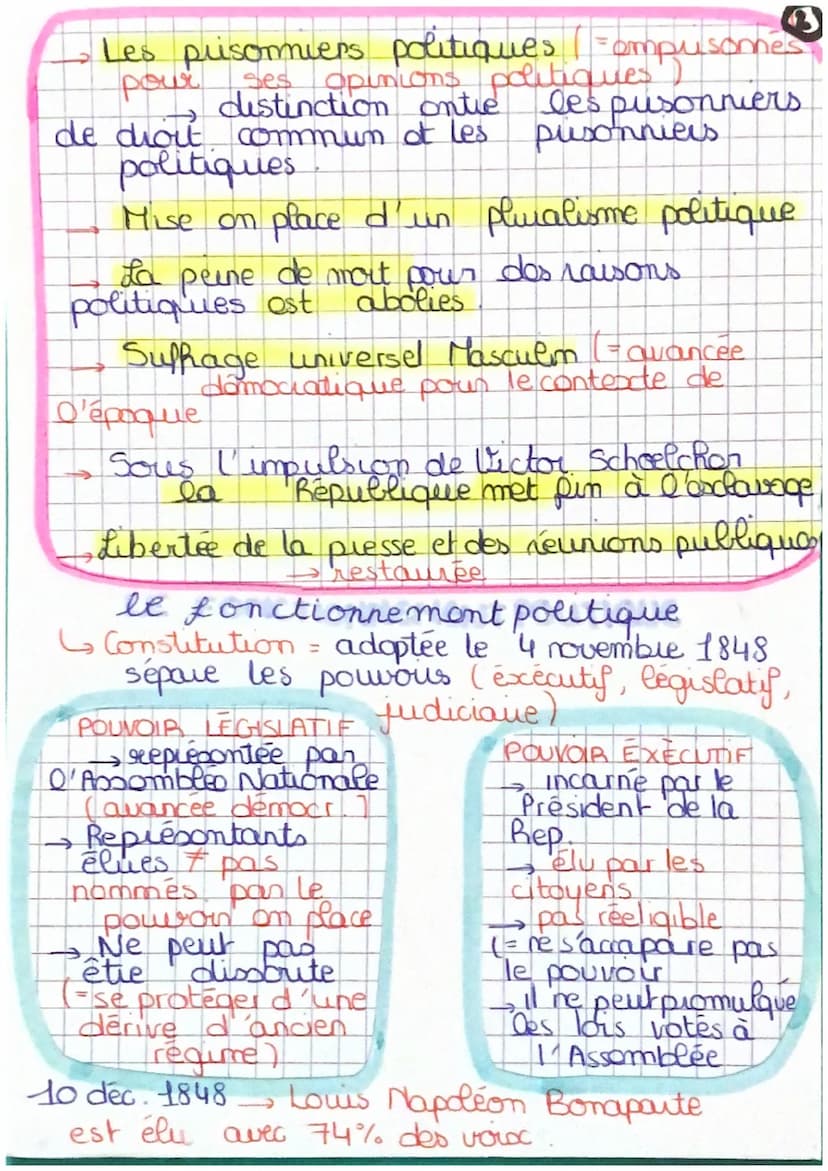 3
→ Les prisonniers politiques (=emprisonnés
pour ses opinions politiques)
→ distinction entre les prisonniers
de droit commun et les prisonniers
politiques.
→ Mise en place d'un pluralisme politique
→ La peine de mort pour des raisons
politiques est abolies.
→ Suffrage universel Masculin (=avancée
démocratique pour le contexte de
l'époque
→ Sous l'impulsion de Victor Schoelcher
la République met fin à l'esclavage
→ Libertée de la presse et des réunions publiques
→ restaurée
le fonctionnement politique
↳ Constitution = adoptée le 4 novembre 1848
sépare les pouvous (éxécutif, législatif,
judiciaire)
POUVOIR LÉGISLATIF
→ représentée par
l'Assemblée Nationale
(avancée démocr.)
→ Représentants
élues ≠ pas
nommés par le
pouvoir en place
→ Ne peut pas
être dissoute
(=se protéger d'une
dérive d'ancien
régime)
POUVOIR ÉXÈCUTIF
→ incarné par le
Président de la
Rep.
→ élu par les
citoyens
→ pas réeligible
(= ne s'accapare pas
le pouvoir
→ il ne peut promulgué
les lois votés à
l'Assemblée
10 déc. 1848 → Louis Napoléon Bonaparte
est élu avec 74% des voix.